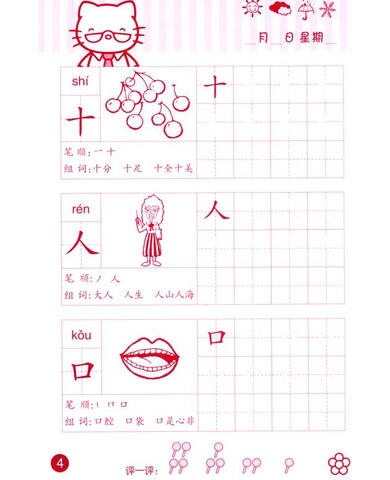 月 日 星期
shí
十 十
笔顺:一 十
组词:十分 十足 十全十美
rén
人 人
笔顺:丿 人
组词:大人 人生 人山人海
kǒu
口 口
笔顺:丨 𠃍 口
组词:口腔 口袋 口是心非
4
评一评: